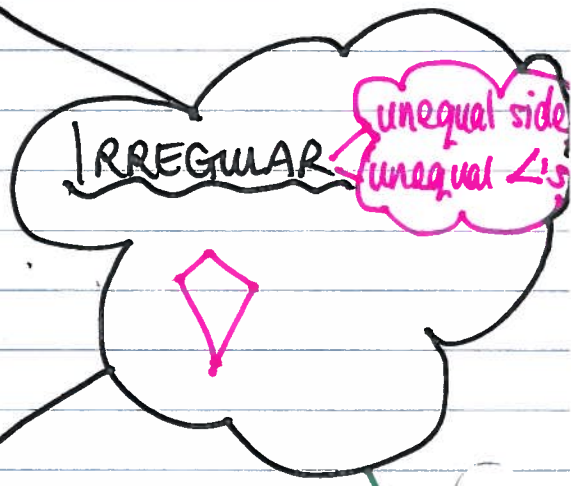 IRREGULAR
unequal side
unequal ∠'s